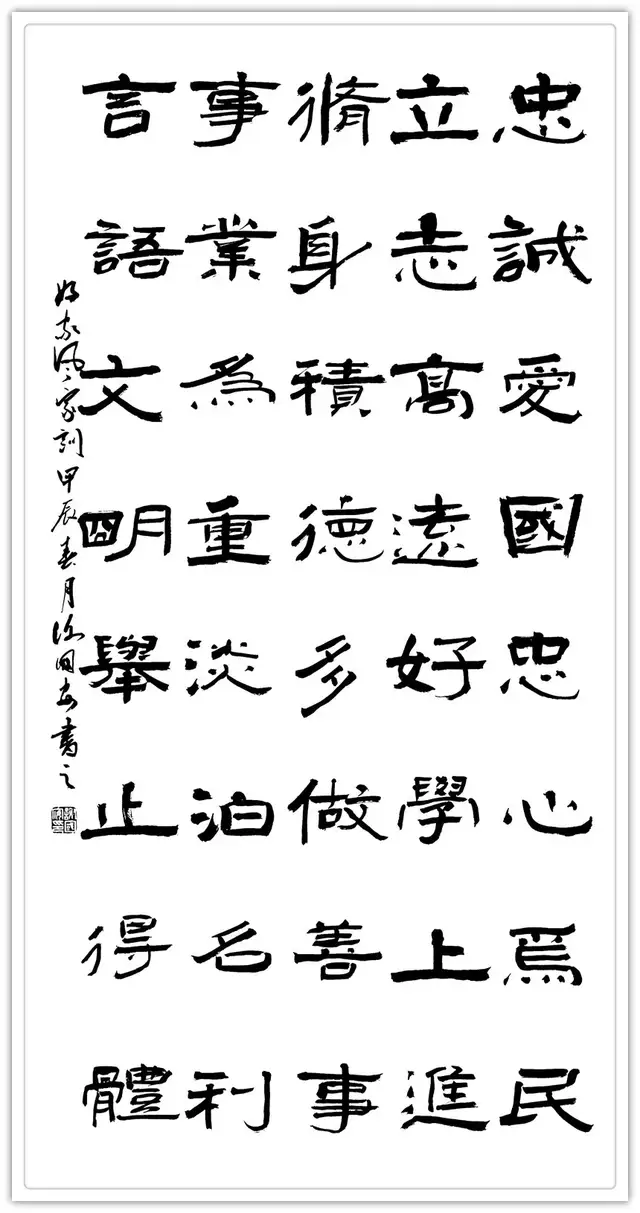 忠誠愛國忠心焉民
立志高遠好學上進
脩身積德多做善事
事業為重淡泊名利
言語文明舉止得體
好家风家訓甲辰春月国安書之